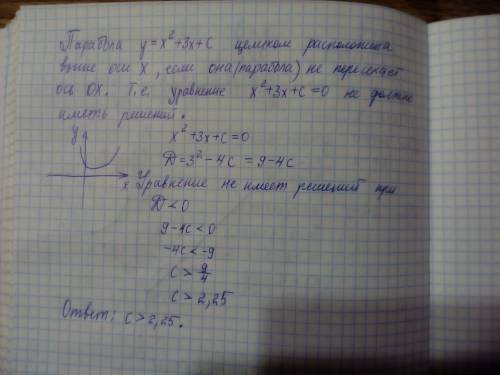 Парабола y = x² + 3x + c целиком расположена
выше оси x, если она (парабола) не пересекает
ось OX. Т.е. уравнение x² + 3x + c = 0 не должно
иметь решений.
y
x² + 3x + c = 0
D = 3² − 4c = 9 − 4c
x Уравнение не имеет решений при
D < 0
9 − 4c < 0
−4c < −9
c > 9/4
c > 2,25
Ответ: c > 2,25.